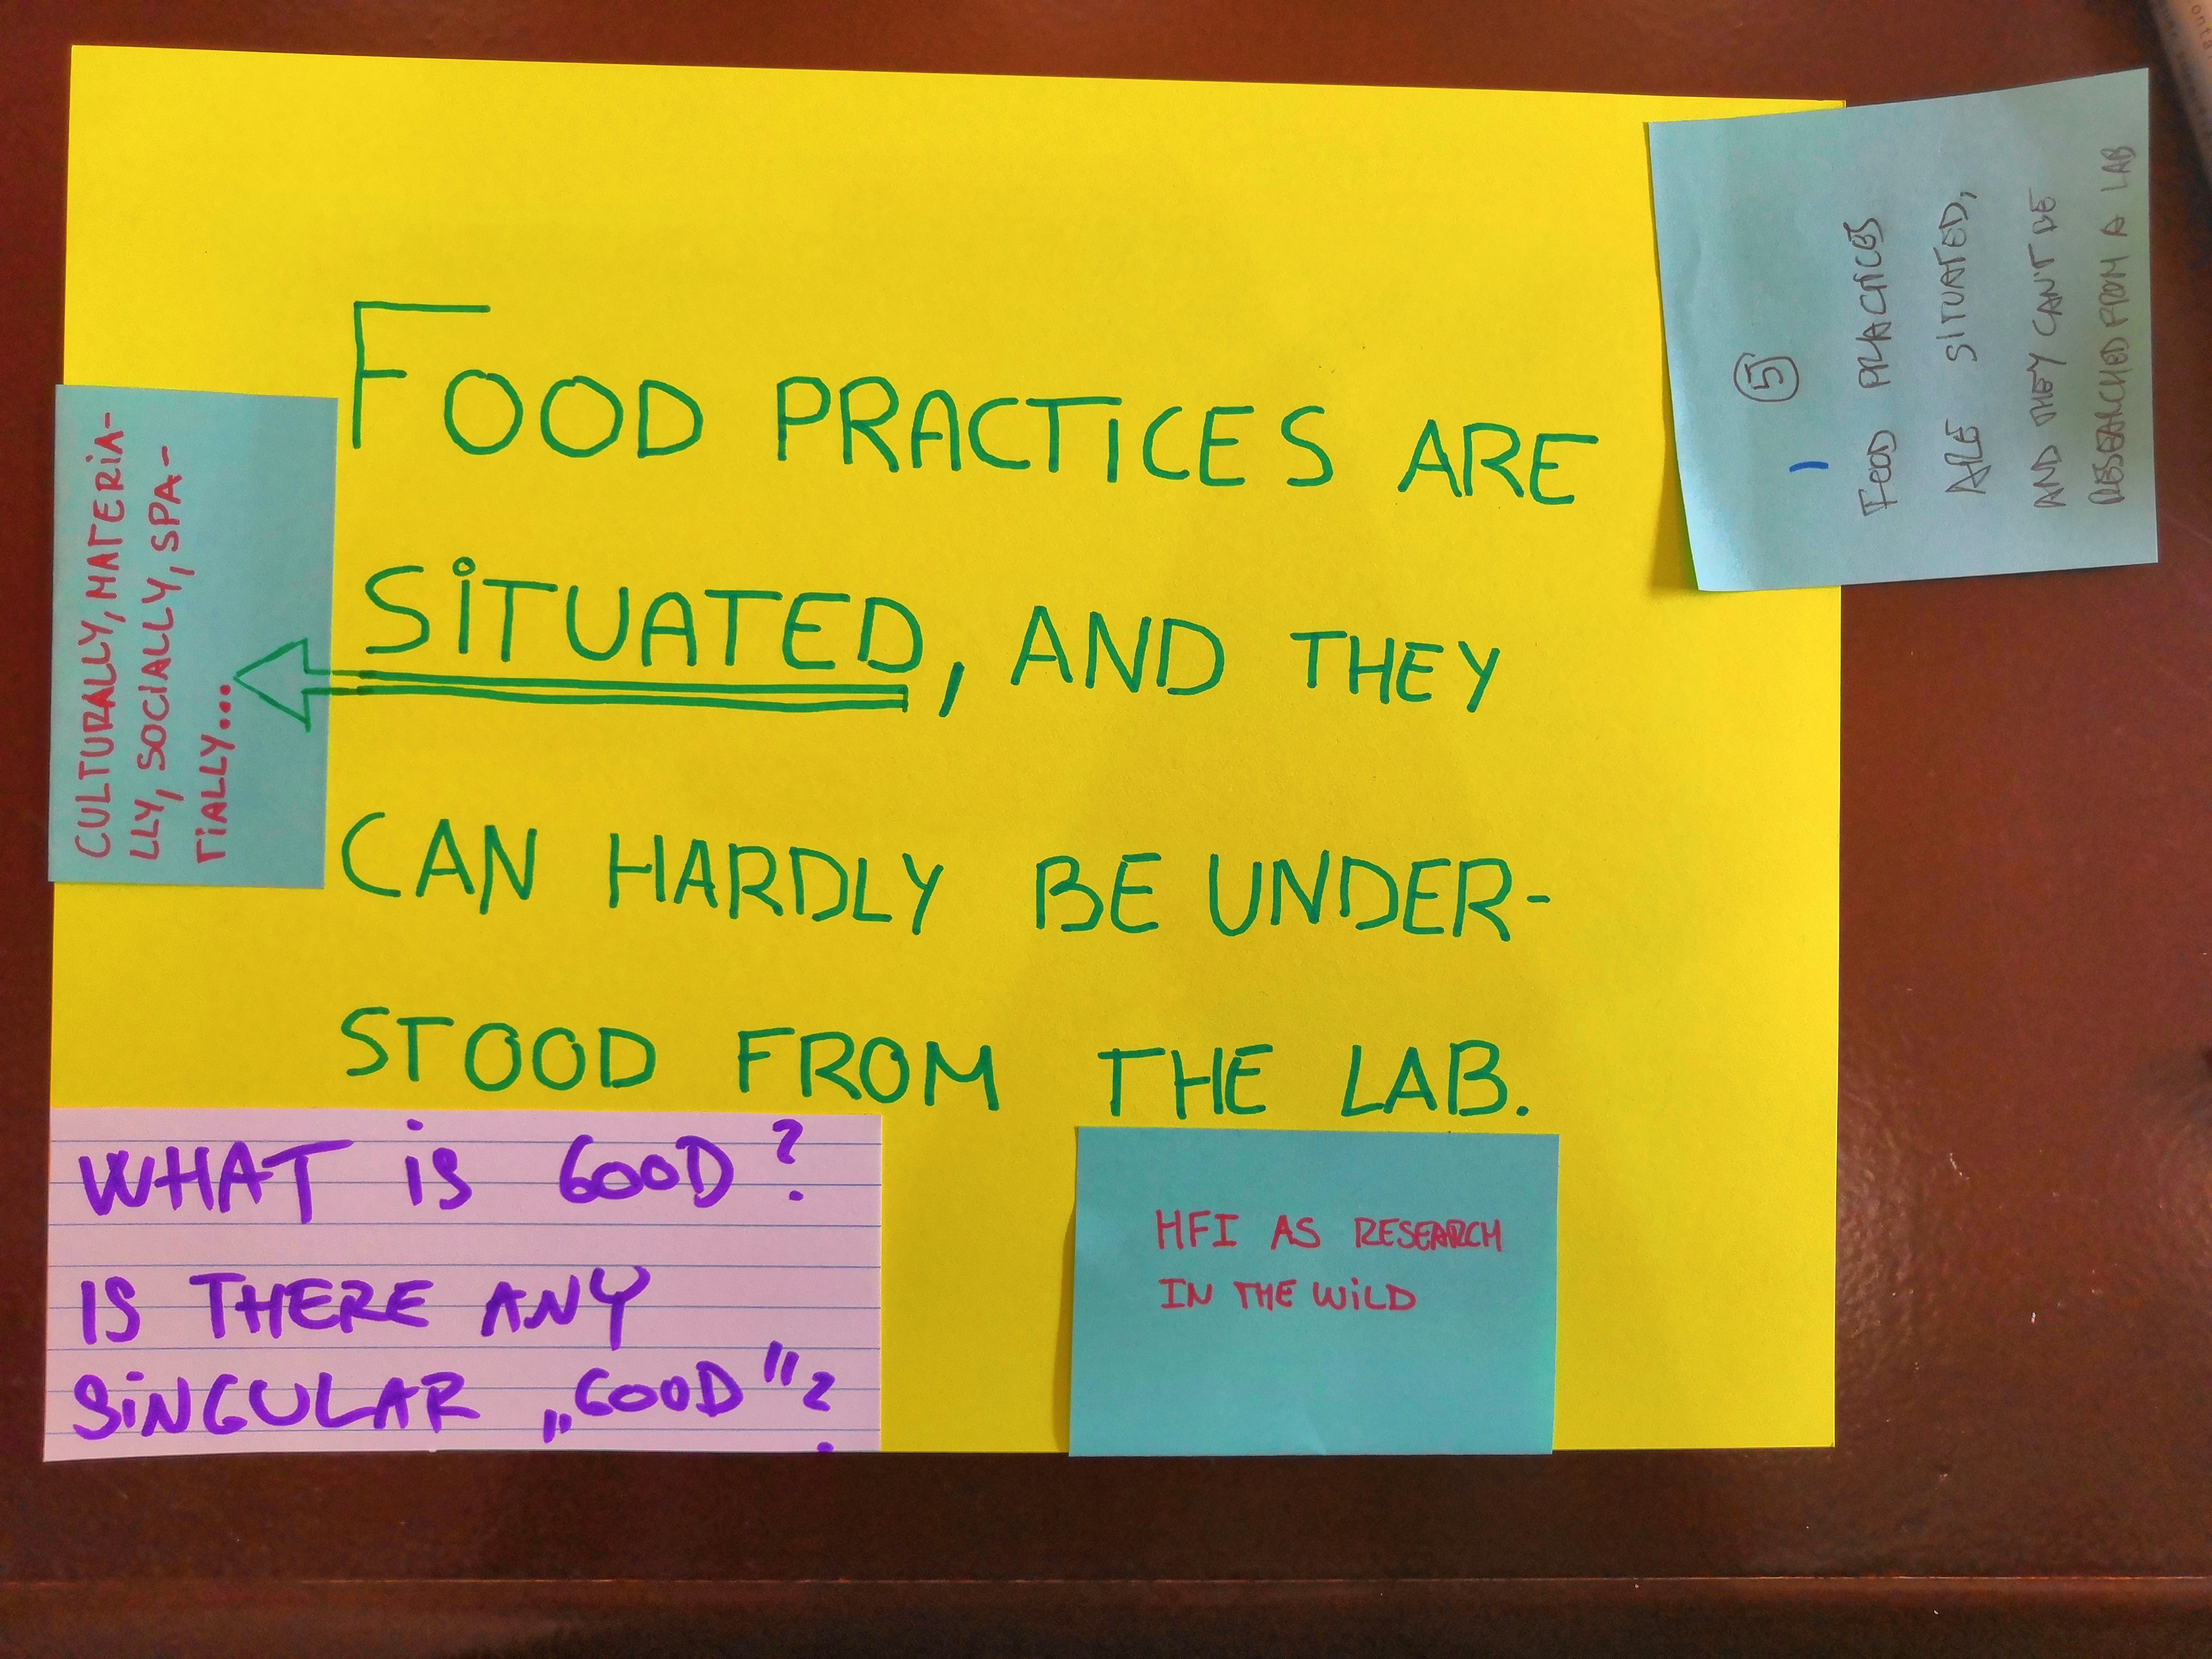 FOOD PRACTICES ARE
SITUATED, AND THEY
CAN HARDLY BE UNDER-
STOOD FROM THE LAB.
CULTURALLY, MATERIA-
LLY, SOCIALLY, SPA-
TIALLY...
5
FOOD PRACTICES
ARE SITUATED,
AND THEY CAN'T BE
RESEARCHED FROM A LAB
WHAT IS GOOD?
IS THERE ANY
SINGULAR „GOOD"?
HFI AS RESEARCH
IN THE WILD